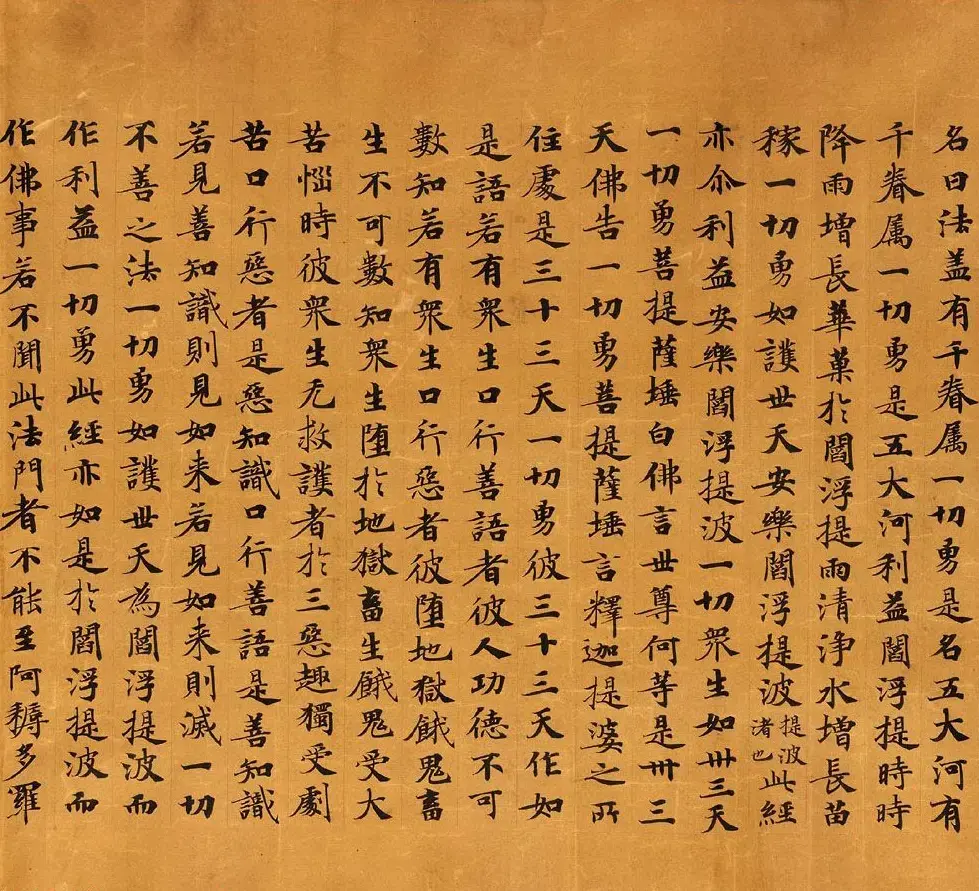 名曰法盖有千眷属一切勇是名五大河有
千眷属一切勇是五大河利益閻浮提時時
降雨增長華菓於閻浮提雨清淨水增長苗
稼一切勇如護世天安樂閻浮提波提波渚也此經
亦尒利益安樂閻浮提波一切衆生如卅三天
一切勇菩提薩埵白佛言世尊何等是卅三
天佛告一切勇菩提薩埵言釋迦提婆之所
住處是三十三天一切勇彼三十三天作如
是語若有衆生口行善語者彼人功德不可
數知若有衆生口行惡者彼墮地獄餓鬼畜
生不可數知衆生墮於地獄畜生餓鬼受大
苦惱時彼衆生无救護者於三惡趣獨受劇
苦口行惡者是惡知識口行善語是善知識
若見善知識則見如来若見如来則滅一切
不善之法一切勇如護世天為閻浮提波而
作利益一切勇此經亦如是於閻浮提波而
作佛事若不聞此法門者不能至阿耨多羅